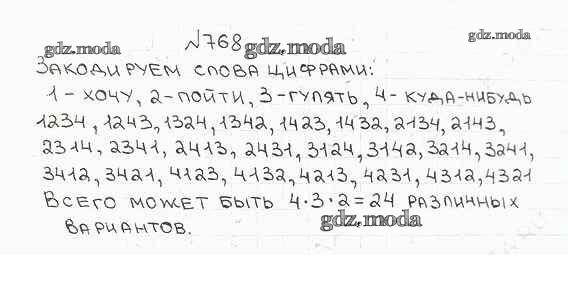 №768
gdz.moda gdz.moda gdz.moda
Закодируем слова цифрами:
1 - хочу, 2 - пойти, 3 - гулять, 4 - куда-нибудь
1234, 1243, 1324, 1342, 1423, 1432, 2134, 2143,
2314, 2341, 2413, 2431, 3124, 3142, 3214, 3241,
3412, 3421, 4123, 4132, 4213, 4231, 4312, 4321
Всего может быть 4·3·2=24 различных
вариантов.
gdz.moda